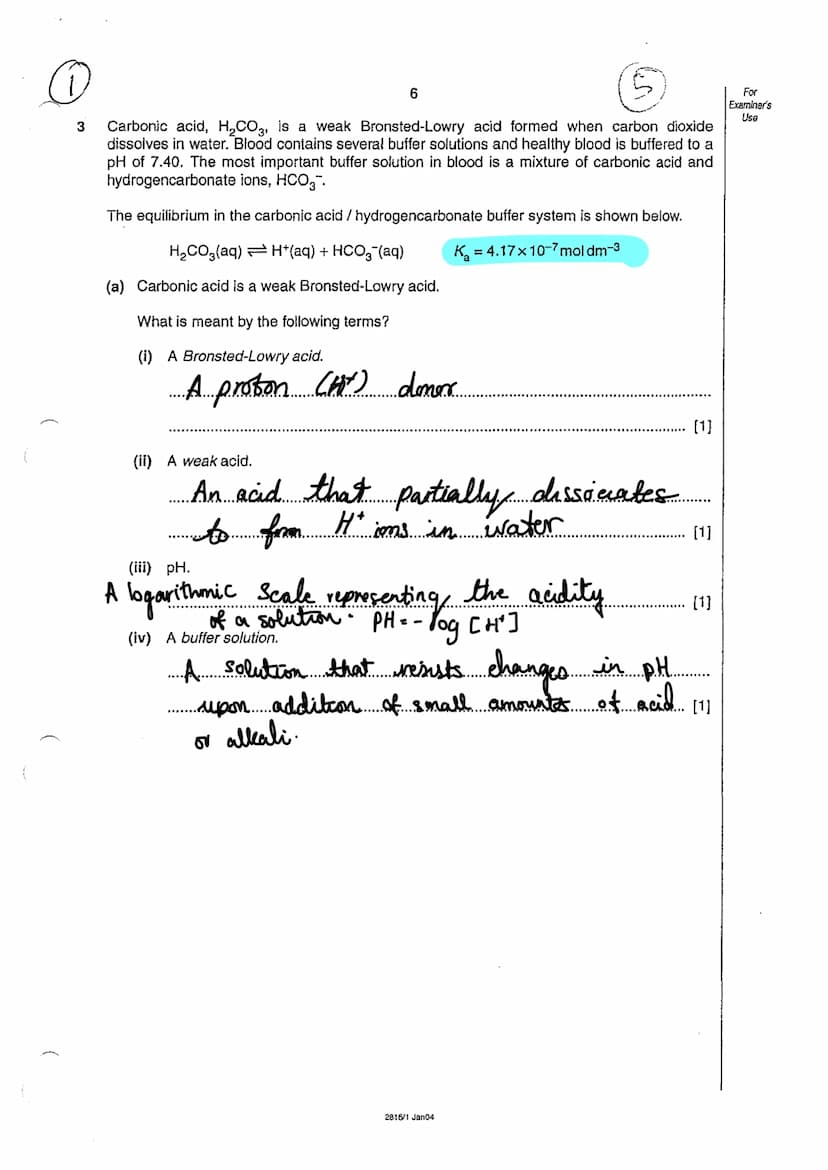 1
5
6
For
Examiner's
Use
3 Carbonic acid, H₂CO₃, is a weak Bronsted-Lowry acid formed when carbon dioxide
dissolves in water. Blood contains several buffer solutions and healthy blood is buffered to a
pH of 7.40. The most important buffer solution in blood is a mixture of carbonic acid and
hydrogencarbonate ions, HCO₃⁻.
The equilibrium in the carbonic acid / hydrogencarbonate buffer system is shown below.
H₂CO₃(aq) ⇌ H⁺(aq) + HCO₃⁻(aq) Kₐ = 4.17×10⁻⁷ mol dm⁻³
(a) Carbonic acid is a weak Bronsted-Lowry acid.
What is meant by the following terms?
(i) A Bronsted-Lowry acid.
A proton (H⁺) donor
[1]
(ii) A weak acid.
An acid that partially dissociates
to form H⁺ ions in water [1]
(iii) pH.
A logarithmic scale representing the acidity [1]
of a solution. PH = - log [H⁺]
(iv) A buffer solution.
A solution that resists changes in pH
upon addition of small amounts of acid [1]
or alkali.
2815/1 Jan04